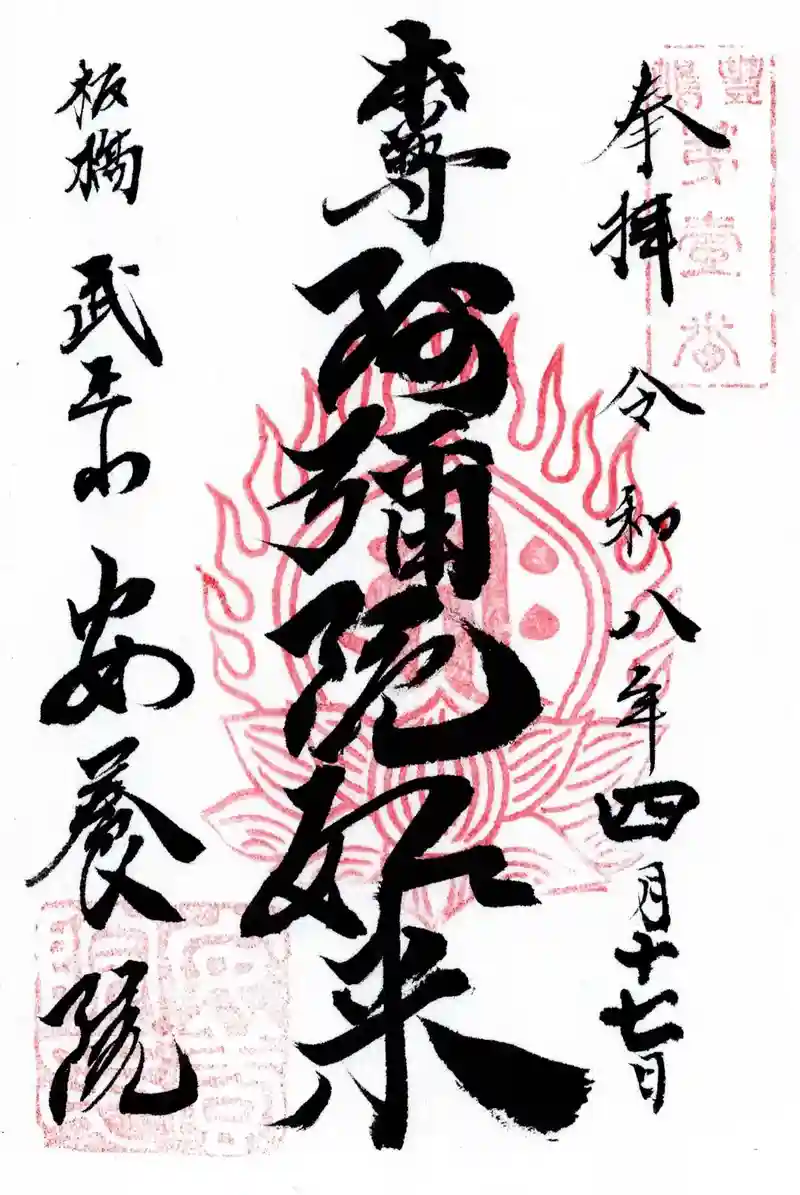 奉拝 令和八年四月十七日
本尊 阿彌陀如来
板橋 武王山 安養院